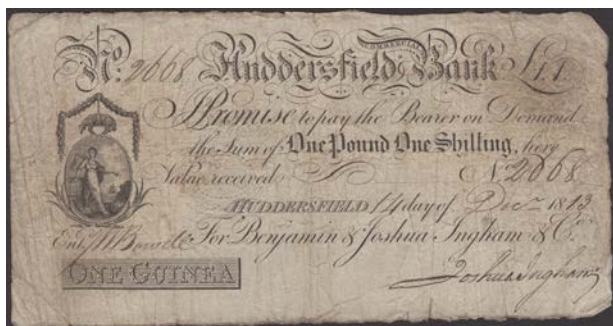 No. 2668 Huddersfield COMMERCIAL Bank £1.1.
I Promise to pay the Bearer on Demand
the Sum of One Pound One Shilling, here
Value received No. 2668
HUDDERSFIELD 14 day of Decr. 1813
Entd. For Benjamin & Joshua Ingham & Co.
ONE GUINEA Joshua Ingham